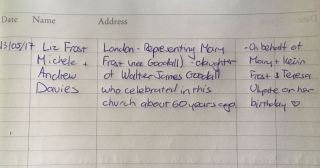 Date Name Address
13/05/17 Liz Frost London - Representing Mary - On behalf of
Michele + Frost (nee Goodall) - daughter Mary + Kevin
Andrew of Walter James Goodall Frost & Teresa
Davies who celebrated in this on her
church about 60 years ago. birthday ♡